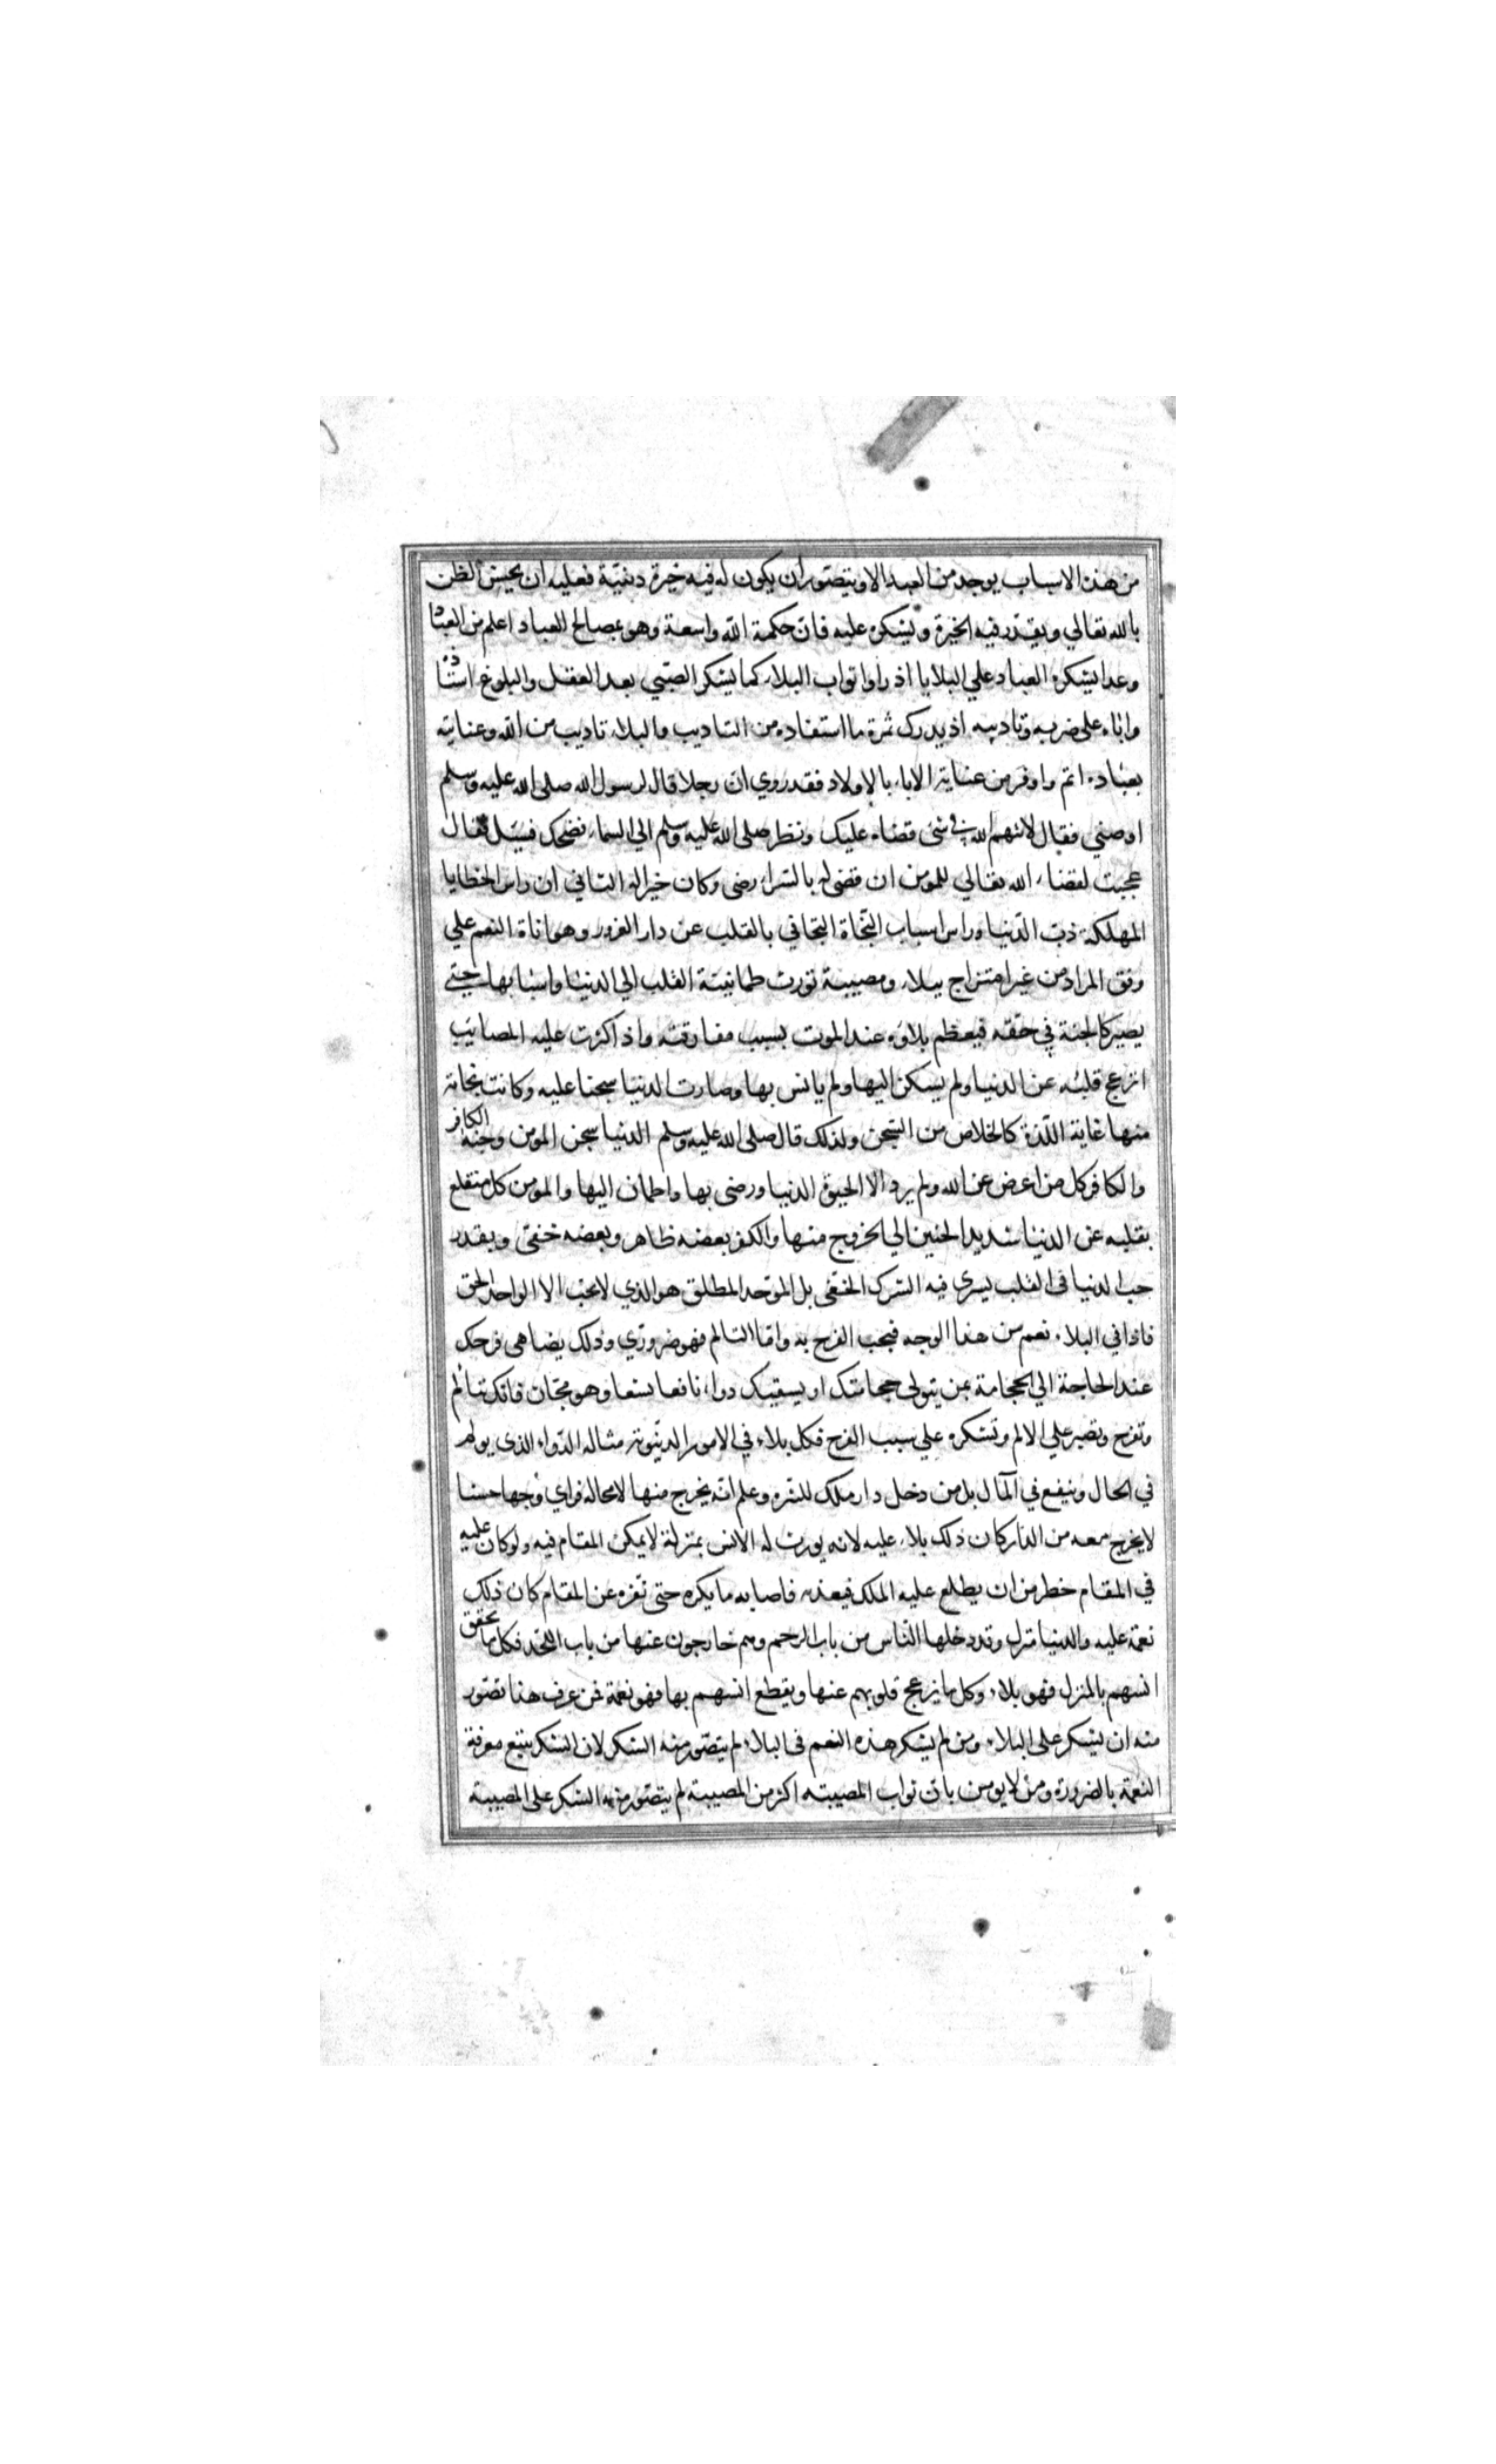 من هذه الاسباب يوجد من العبد الا ويتصور ان يكون له فيه خيرة دينية فعليه ان يحسن الظن
بالله تعالي ويقدر فيه الخيرة ويشكره عليه فان حكمة الله واسعة وهو بمصالح العباد اعلم من العباد
وغدا يشكره العباد علي البلايا اذ راوا ثواب البلاء كما يشكر الصبي بعد العقل والبلوغ استاذه
واباه علي ضربه وتاديبه اذ يدرك ثمرة ما استفاده من التاديب والبلاء تاديب من الله وعنايته
بعباده اتم واوفر من عناية الاباء بالاولاد فقد روي ان رجلا قال لرسول الله صلى الله عليه وسلم
اوصني فقال لا تتهم الله في شئ قضاه عليك ونظر صلى الله عليه وسلم الي السماء فضحك فسئل فقال
عجبت لقضاء الله تعالي للمومن ان قضى له بالسراء رضى وكان خيرا له الثاني ان راس الخطايا
المهلكة حب الدنيا وراس اسباب النجاة التجافي بالقلب عن دار الغرور وهواناة النعم علي
وفق المراد من غير امتزاج ببلاء ومصيبة تورث طمانينة القلب الي الدنيا واسبابها حتي
يصير كالجنة في حقه فيعظم بلاؤه عند الموت بسبب مفارقته واذا كثرت عليه المصائب
انزعج قلبه عن الدنيا ولم يسكن اليها ولم يانس بها وصارت الدنيا سجنا عليه وكانت نجاته
منها غاية اللذة كالخلاص من السجن ولذلك قال صلى الله عليه وسلم الدنيا سجن المومن وجنة الكافر
والكافر كل من اعرض عن الله ولم يرد الا الحيوة الدنيا ورضى بها واطمان اليها والمومن كل منقلع
بقلبه عن الدنيا شديد الحنين الي الخروج منها والكفر بعضه ظاهر وبعضه خفي وبقدر
حب الدنيا في القلب يسري فيه الشرك الخفى بل الموحد المطلق هو الذي لا يحب الا الواحد الحق
فاذا في البلاء نعم من هذا الوجه فيجب الفرح به واما التالم فهو ضروري وذلك يضاهى فرحك
عند الحاجة الي الحجامة بمن يتولى حجامتك او يسقيك دواء نافعا بشعا وهو مجان فانك تتالم
وتفرح وتصبر علي الالم وتشكره علي سبب الفرح فكل بلاء في الامور الدنيوية مثاله الدواء الذى يولم
في الحال وينفع في المآل بل من دخل دار ملك للنزه وعلم انه يخرج منها لا محالة فراي وجها حسنا
لا يخرج معه من الدار كان ذلك بلاء عليه لانه يورث له الانس بمنزلة لا يمكن المقام فيه ولو كان عليه
في المقام خطر من ان يطلع عليه الملك فيعذبه فاصابه ما يكره حتى نفره عن المقام كان ذلك
نعمة عليه والدنيا منزل وقد دخلها الناس من باب الرحم وهم خارجون عنها من باب اللحد فكل ما يحقق
انسهم بالمنزل فهو بلاء وكل ما يزعج قلوبهم عنها ويقطع انسهم بها فهو نعمة فمن عرف هذا تصور
منه ان يشكر علي البلاء ومن لم يشكر هذه النعم في البلاء لم يتصور منه الشكر لان الشكر يتبع معرفة
النعمة بالضرورة ومن لا يومن بان ثواب المصيبته اكثر من المصيبة لم يتصور منه الشكر علي المصيبة